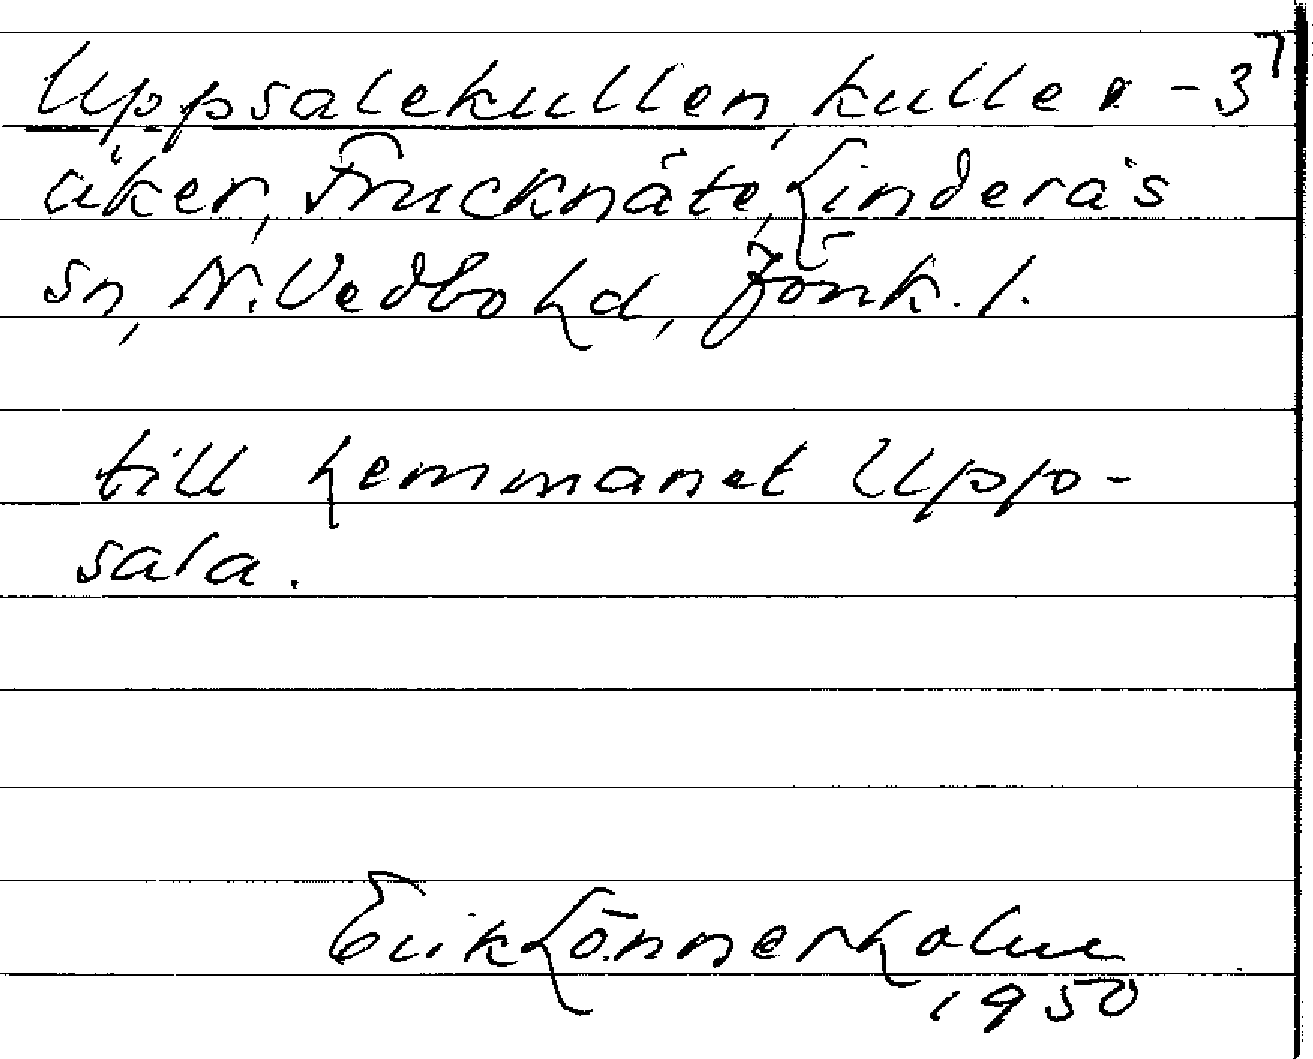 Uppsalekullen, kulle o - 3⁷
åker, Frucknäte, Linderås
sn, N. Vedbo hd, Jönk. l.
till hemmanet Upp-
sala.
Erik Lönnerholm
1950